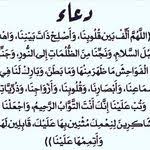 دعاء
((اللَّهُمَّ أَلِّفْ بَيْنَ قُلُوبِنَا، وَأَصْلِحْ ذَاتَ بَيْنِنَا، وَاهْدِنَا
سُبُلَ السَّلَامِ، وَنَجِّنَا مِنَ الظُّلُمَاتِ إِلَى النُّورِ، وَجَنِّبْنَا
الْفَوَاحِشَ مَا ظَهَرَ مِنْهَا وَمَا بَطَنَ، وَبَارِكْ لَنَا فِي
أَسْمَاعِنَا، وَأَبْصَارِنَا، وَقُلُوبِنَا، وَأَزْوَاجِنَا، وَذُرِّيَّاتِنَا،
وَتُبْ عَلَيْنَا إِنَّكَ أَنْتَ التَّوَّابُ الرَّحِيمُ، وَاجْعَلْنَا
شَاكِرِينَ لِنِعْمَتِكَ مُثْنِينَ بِهَا عَلَيْكَ، قَابِلِينَ لَهَا
وَأَتِمَّهَا عَلَيْنَا))